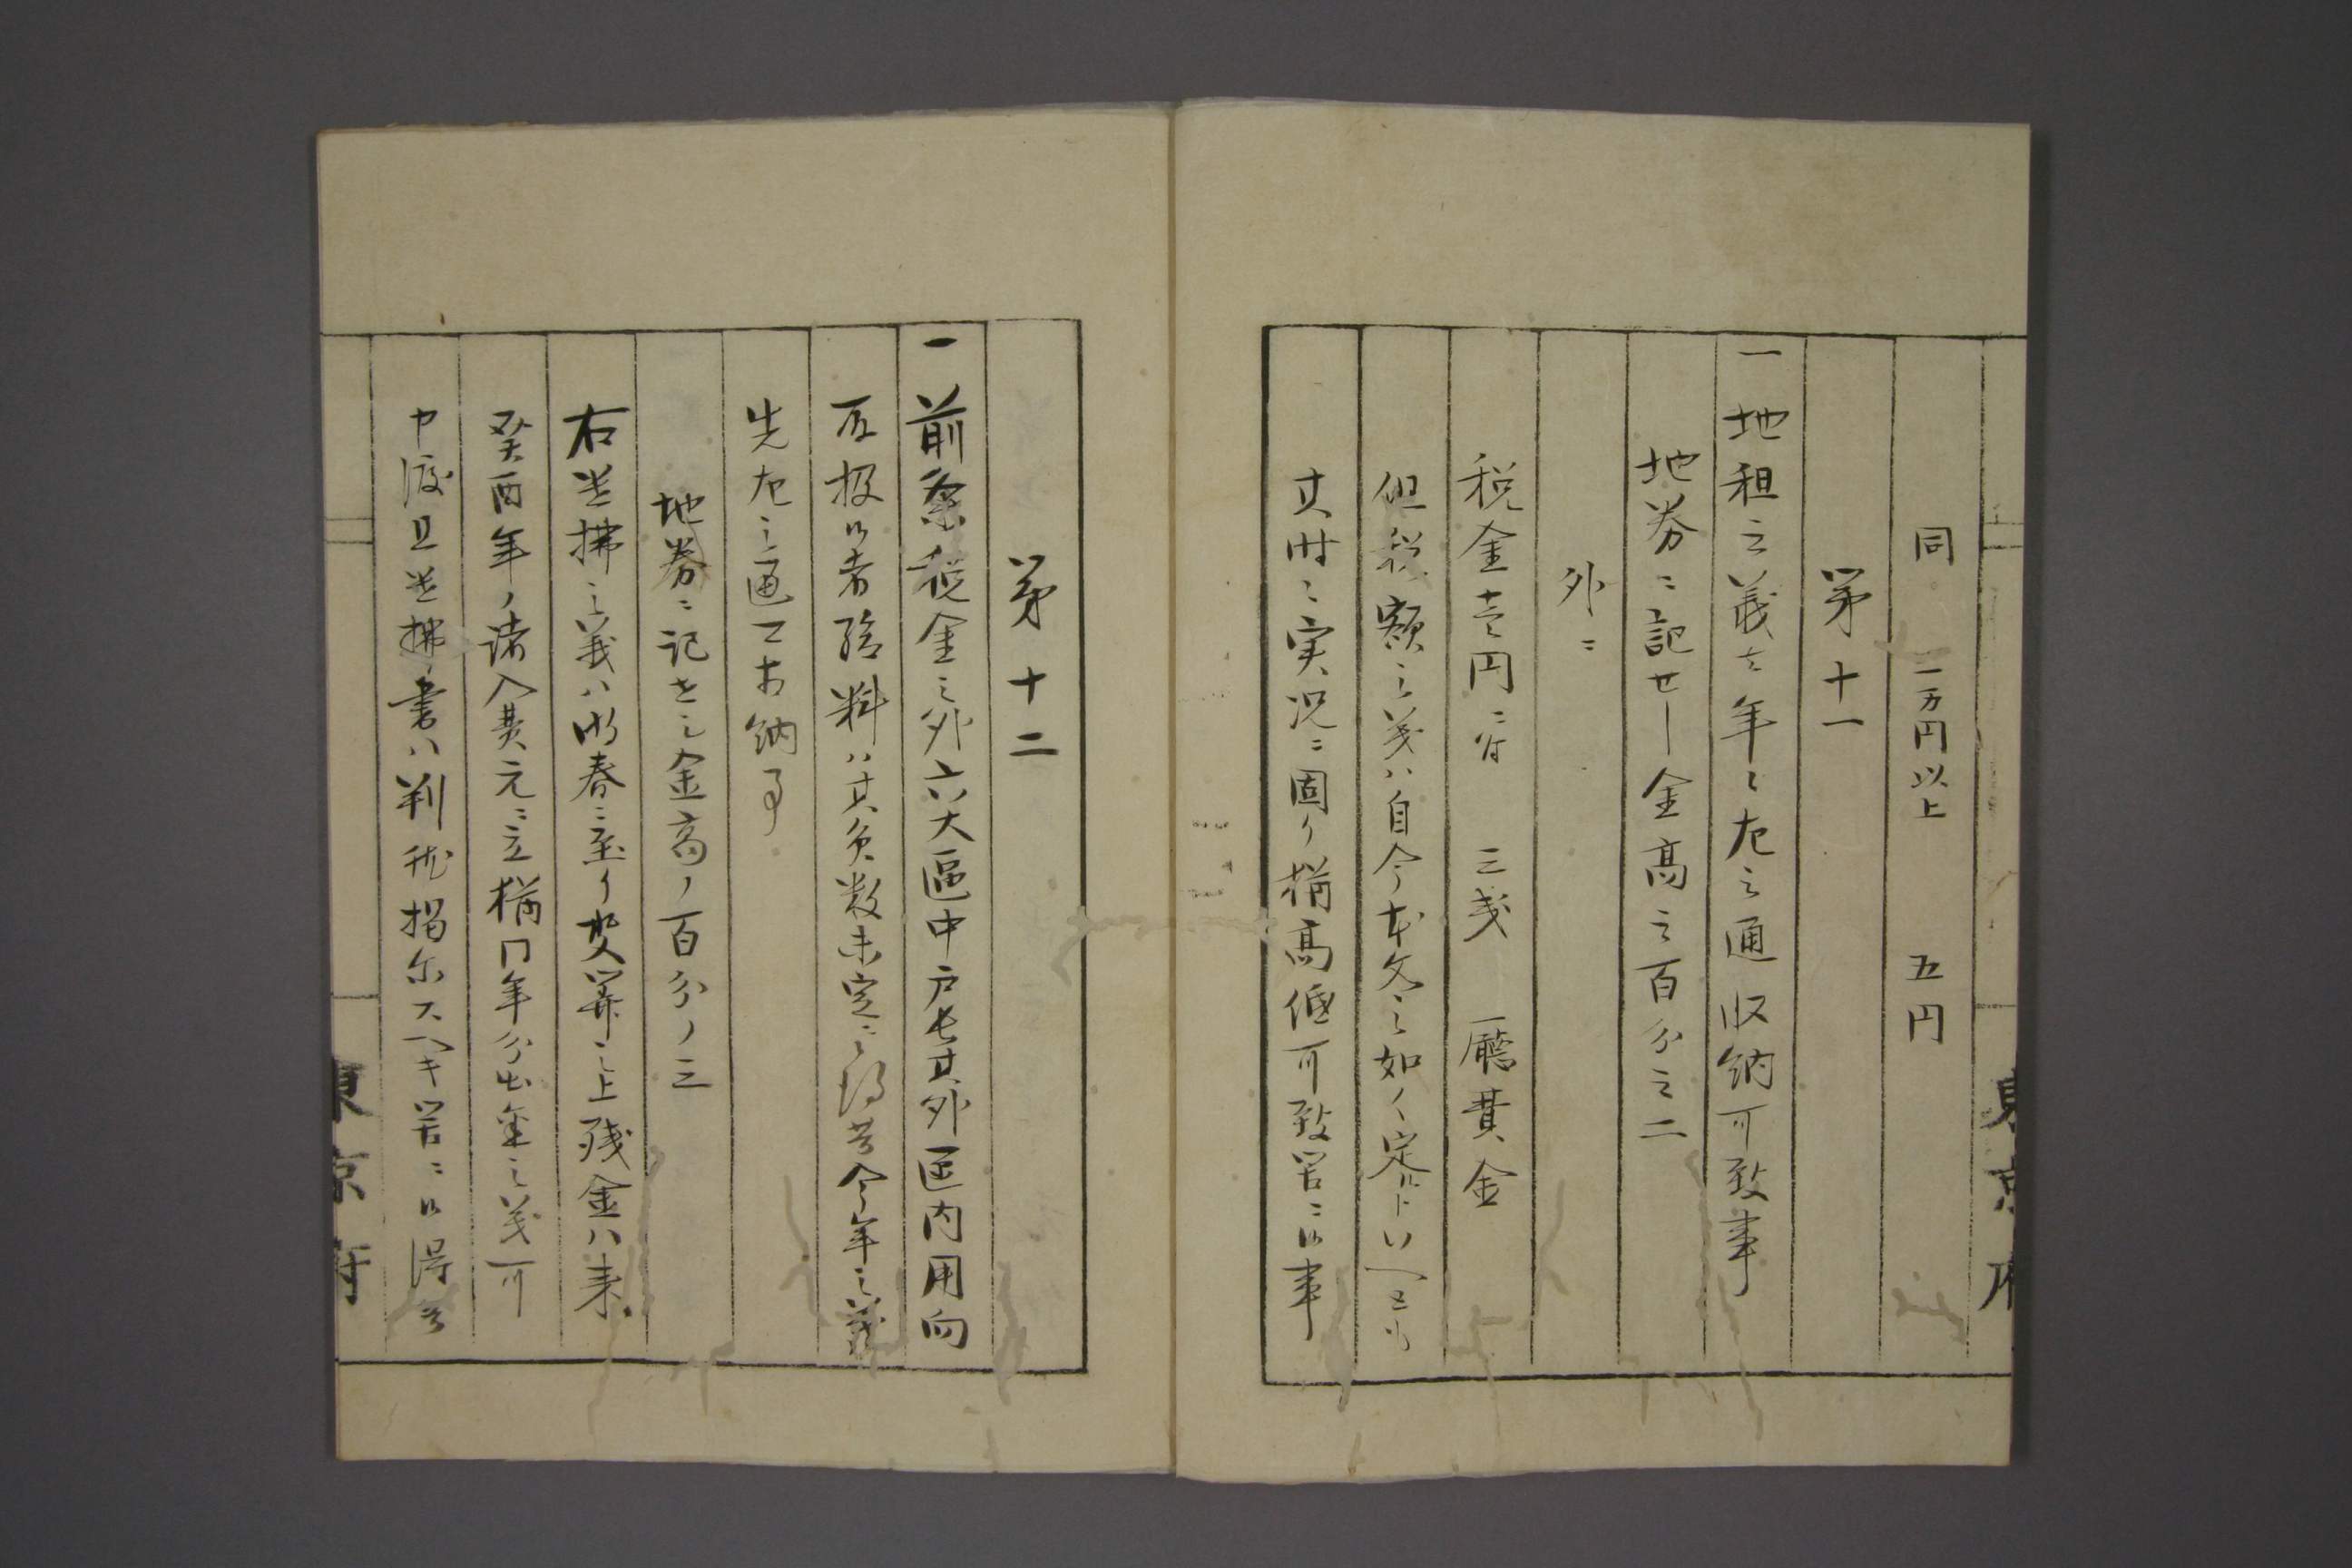 同 二万円以上 五円
第十一
一 地租之義ハ年々左之通収納可致事
地券ニ記セシ金高之百分之二
外ニ
税金壱円ニ付 三戔 廳費金
但税額之義ハ自今本文之如ク定ルトイヘトモ
其時之実況ニ因リ構高低可致筈ニ候事
第十二
一 前条税金之外六大區中戸長其外区内用向
取扱候者給料ハ其員数未定ニ候得共今年之義
先左之通可相納事
地券ニ記セシ金高ノ百分ノ三
右遣拂之義ハ明春ニ至リ決算之上残金ハ来
癸酉年ノ諸入費元ニ立構同年分出金之義可
申渡且遣拂書ハ判然掲示スヘキ筈ニ候得共
東京府